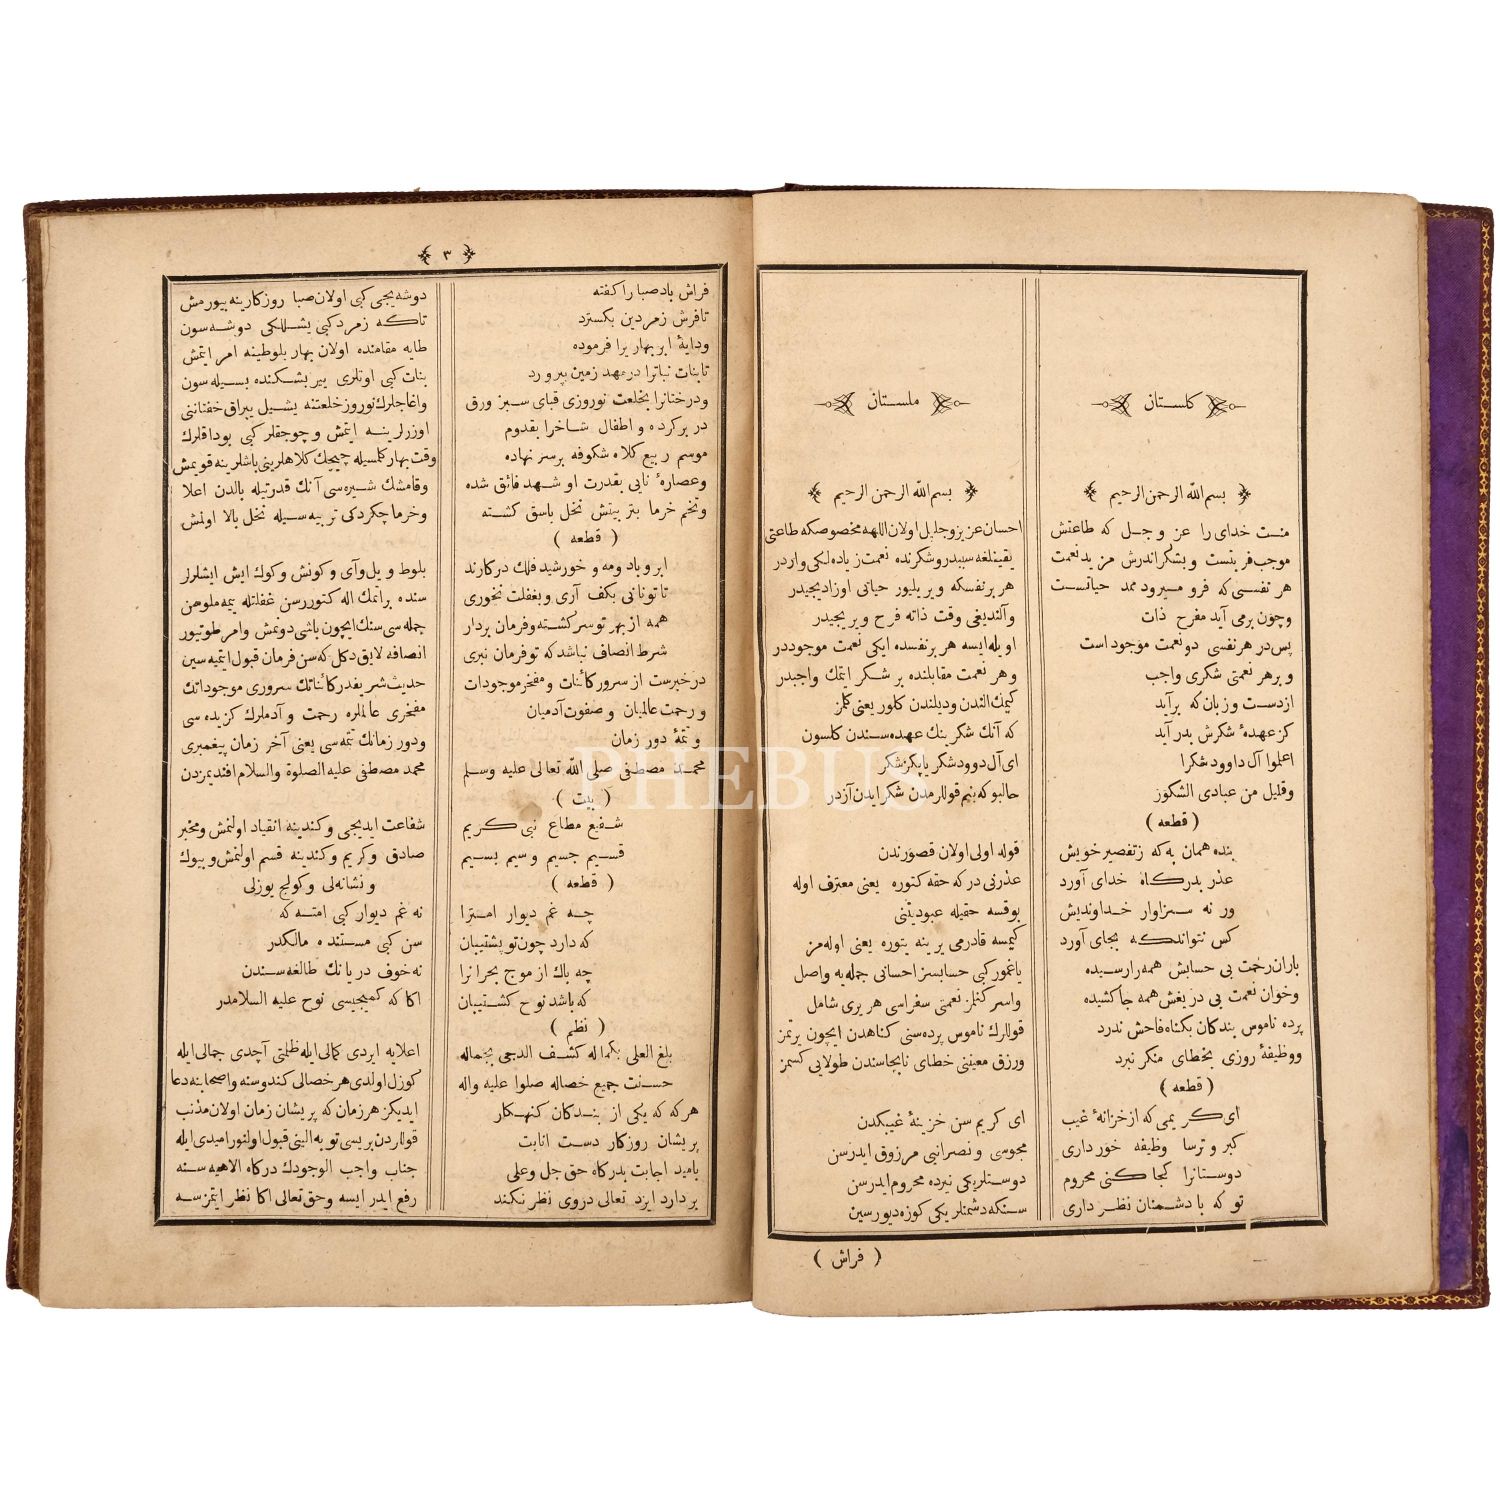 كلستان
بسم الله الرحمن الرحيم
منت خدای را عز وجل كه طاعتش
موجب قربتست وبشكر اندرش مزيد نعمت
هر نفسی كه فرو ميرود ممد حياتست
وچون برمی آيد مفرح ذات
پس در هر نفسی دو نعمت موجود است
و برهر نعمتی شكری واجب
ازدست و زبان كه برآيد
كز عهدهٔ شكرش بدر آيد
اعملوا آل داوود شكرا
وقليل من عبادی الشكور
( قطعه )
بنده همان به كه زتقصير خويش
عذر بدركاه خدای آورد
ور نه سزاوار خداونديش
كس نتواندكه بجای آورد
باران رحمت بی حسابش همه را رسيده
وخوان نعمت بی دريغش همه جا كشيده
پرده ناموس بندكان بكناه فاحش ندرد
ووظيفهٔ روزی بخطای منكر نبرد
( قطعه )
ای كريمی كه از خزانهٔ غيب
كبر و ترسا وظيفه خور داری
دوستانرا كجا كنی محروم
تو كه با دشمنان نظر داری
ملستان
بسم الله الرحمن الرحيم
احسان عزيز وجليل اولان اللهه مخصوصكه طاعتی
يقينلغه سببدر وشكرنده نعمت زياده لكی واردر
هر برنفسكه ويريليور حياتی اوزاديجيدر
وآلنديغی وقت ذاته فرح ويريجيدر
اويله ايسه هر برنفسده ايكی نعمت موجوددر
و هر نعمت مقابلنده بر شكر ايتمك واجبدر
كيمك الندن وديلندن كلور يعنی كلمز
كه آنك شكرينك عهده سندن كلسون
ای آل داوود شكر ياپكز شكر
حالبوكه بنم قوللرمدن شكر ايدن آزدر
قوله اولی اولان قصورندن
عذرنی دركه حقه كتوره يعنی معترف اوله
يوقسه حقيله عبوديتنی
كيمسه قادرمی يرينه يتوره يعنی اوله مز
ياغمور كبی حسابسز احسانی جمله يه واصل
واسر كنلمز نعمتی سفراسی هر يری شامل
قوللرك ناموس پرده سنی كناهدن ايچون يرتمز
ورزق معيننی خطای نابجاسندن طولايی كسمز
ای كريم سن خزينهٔ غيبكدن
مجوسی و نصرانيی مرزوق ايدرسن
دوستلريكی نيرده محروم ايدرسن
سنكه دشمنلريكی كوزه ديورسين
( فراش )
٣
فراش باد صبا را كفته
تا فرش زمردين بكسترد
ودايهٔ ابر بهاريرا فرموده
تا بنات نباترا درمهد زمين بپرورد
ودرختانرا بخلعت نوروزی قبای سبز ورق
در بر كرده و اطفال شاخرا بقدوم
موسم ربيع كلاه شكوفه برسر نهاده
وعصارهٔ نايی بقدرت او شهد فائق شده
وتخم خرما بتربيتش نخل باسق كشته
( قطعه )
ابر و باد ومه و خورشيد فلك دركارند
تا تونانی بكف آری وبغفلت نخوری
همه از بهر تو سركشته وفرمان بردار
شرط انصاف نباشد كه تو فرمان نبری
درخبرست از سرور كائنات و مفخر موجودات
ورحمت عالميان وصفوت آدميان
و تتمهٔ دور زمان
محمد مصطفی صلی الله تعالی عليه وسلم
( بيت )
شفيع مطاع نبی كريم
قسيم جسيم وسيم بسيم
( قطعه )
چه غم ديوار امترا
كه دارد چون تو پشتيبان
چه باك از موج بحر انرا
كه باشد نوح كشتيبان
( نظم )
بلغ العلی بكماله كشف الدجی بجماله
حسنت جميع خصاله صلوا عليه واله
هركه كه يكی از بندكان كنهكار
پريشان روزكار دست انابت
باميد اجابت بدركاه حق جل وعلی
بردارد ايزد تعالی دروی نظر نكند
دوشه يجی كبی اولان صبا روزكارينه بيورمش
تاكه زمرد كبی يشللكی دوشه سون
طايه مقامنده اولان بهار بلوطينه امر ايتمش
بنات كبی اوتلری يير بشكنده بسيله سون
واغاجلرك نوروز خلعتنه يشيل يپراق خفتاننی
اوزرلرينه ايتمش و چوجقلر كبی بوداقلرك
وقت بهار كلمسيله چيچك كلاهلرينی باشلرينه قويمش
وقامشك شيره سی آنك قدرتيله بالدن اعلا
وخرما چكردكی تربيه سيله نخل بالا اولمش
بلوط ويل وآی وكونش وكوك ايش ايشلرلر
سنده براتمك اله كتوررسن غفلتله يمه ملوهن
جمله سی سنك ايچون باشی دونمش وامر طوتيور
انصافه لايق دكل كه سن فرمان قبول ايتميه سين
حديث شريفدر كائناتك سروری موجوداتك
مفخری عالملره رحمت و آدملرك كزيده سی
ودور زمانك تتمه سی يعنی آخر زمان پيغمبری
محمد مصطفی عليه الصلوة والسلام افنديمزدن
شفاعت ايديجی وكندينه انقياد اولنمش ومخبر
صادق وكريم وكندينه قسم اولنمش وبيوك
و نشانه لی وكولج يوزلی
نه غم ديوار كبی امته كه
سن كبی مستنده مالكدر
نه خوف دريانك طالغه سندن
اكا كه كميجيسی نوح عليه السلامدر
اعلايه ايردی كمالی ايله ظلمتی آچدی جمالی ايله
كوزل اولدی هر خصالی كندوسنه واصحابنه دعا
ايديكز هر زمان كه پريشان زمان اولان مذنب
قوللردن بريسی توبه النی قبول اولنور اميدی ايله
جناب واجب الوجودك دركاه الاهيه سنه
رفع ايدر ايسه وحق تعالی اكا نظر ايتمزسه
PHEBUS